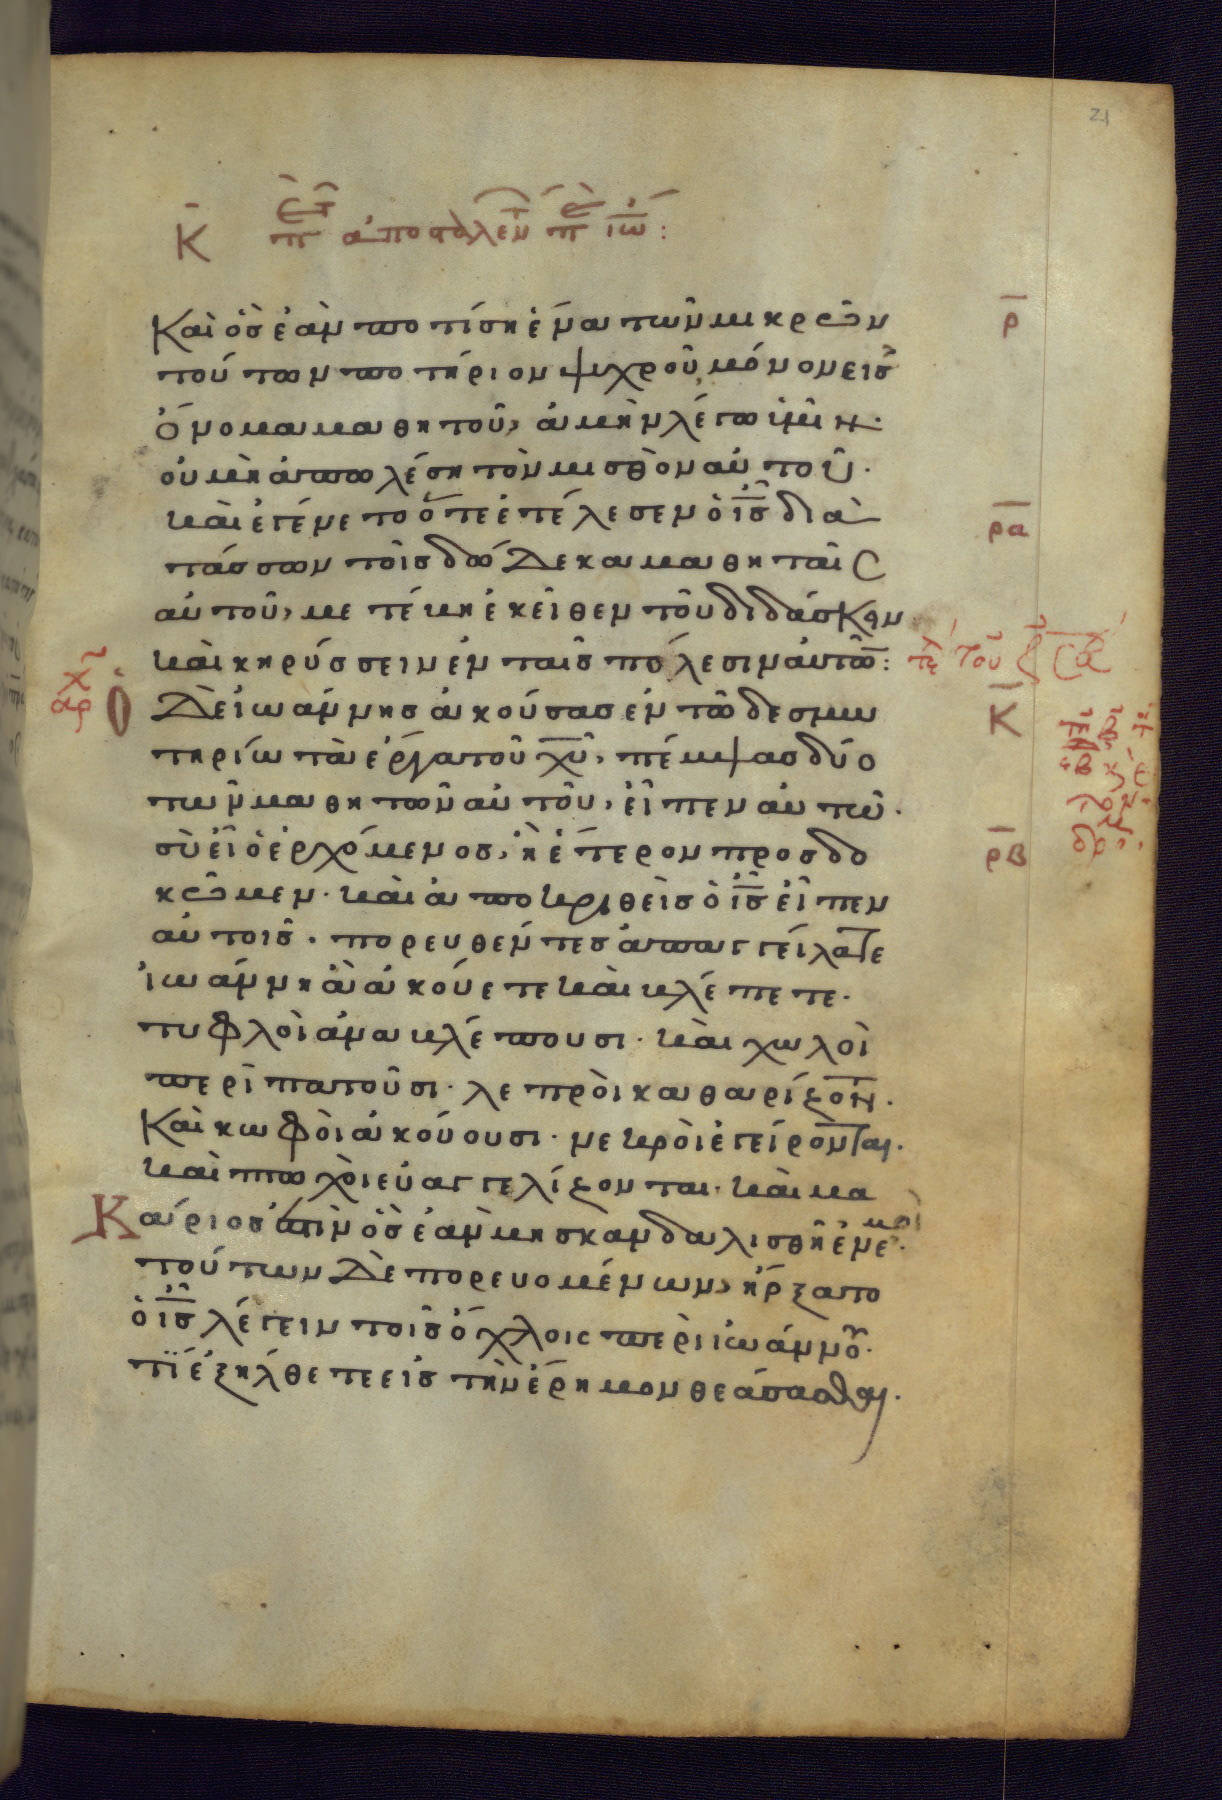 21
Κ περὶ τῶν ἀποσταλέντων παρὰ ἰω:
Καὶ ὃσ ἐὰν ποτίση ἕνα τῶν μικρῶν
τούτων ποτήριον ψυχροῦ μόνον εἰσ
ὄνομα μαθητοῦ, ἀμὴν λέγω ὑμῖν·
οὐ μὴ ἀπωλέση τὸν μισθὸν αὐτοῦ·
καὶ ἐγένετο ὅτε ἐτέλεσεν ὁ ισ δια
τάσσων τοῖσ δώδεκα μαθηταῖσ
αὐτοῦ, μετέβη ἐκεῖθεν τοῦ διδάσκειν
καὶ κηρύσσειν ἐν ταῖσ πόλεσιν αὐτῶν:
Ὁ δὲ ἰωάννησ ἀκούσασ ἐν τῶ δεσμω
τηρίω τὰ ἔργα τοῦ χυ, πέμψασ δύο
τῶν μαθητῶν αὐτοῦ, εἶπεν αὐτῶ·
σὺ εἶ ὁ ἐρχόμενοσ, ἢ ἕτερον προσδο
κῶμεν· καὶ ἀποκριθεὶσ ὁ ισ εἶπεν
αὐτοῖσ· πορευθέντεσ ἀπαγγείλατε
ἰωάννη ἃ ἀκούετε καὶ βλέπετε·
τυφλοὶ ἀναβλέπουσι· καὶ χωλοὶ
περιπατοῦσι· λεπροὶ καθαρίζονται·
Καὶ κωφοὶ ἀκούουσι· νεκροὶ ἐγείρονται·
καὶ πτωχοὶ εὐαγγελίζονται· καὶ μα
Κάριόσ ἐστιν ὃσ ἐὰν μὴ σκανδαλισθῆ ἐν ἐμοί·
τούτων δὲ πορευομένων, ἤρξατο
ὁ ισ λέγειν τοῖσ ὄχλοισ περὶ ἰωάννου·
τί ἐξήλθετε εἰσ τὴν ἔρημον θεάσασθαι·
ρ
ρα
Κ
ρβ